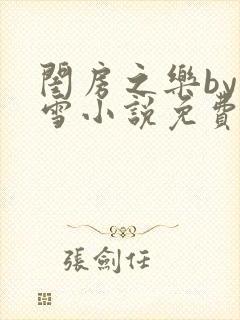 閨房之樂by
雪小說免費
張劍任